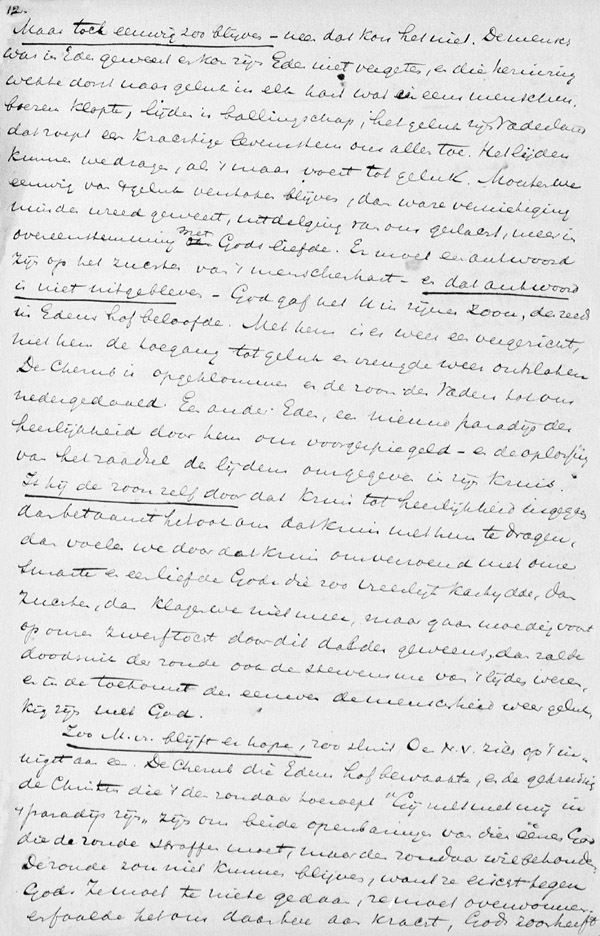 12.
Maar toch eeuwig zoo blijven – neen dat kon het niet. De mensch
was in Eden geweest en kon zijn Eden niet vergeten, en die herinnering
wekte dorst naar geluk in elk hart wat in een menschen
boezem klopte, lijden is ballingschap, het geluk zijn Vaderland
dat roept een krachtige levensstem ons allen toe. Het lijden
kunnen we dragen, als 't maar voert tot geluk. Moesten we
eeuwig van 't geluk verstoken blijven, dan ware vernietiging
minder wreed geweest, uitdelging van ons geslacht, meer in
overeenstemming met Gods liefde. Er moet een antwoord
zijn op het zuchten van 't menschenhart – en dat antwoord
is niet uitgebleven – God gaf het U in zijnen Zoon, die reeds
in Edens hof beloofde. Met hem is er weer een vergezicht,
met hem de toegang tot geluk en vreugde weer ontsloten
De Cherub is opgeklommen en de zoon des Vaders tot ons
nedergedaald. Een ander Eden, een nieuw paradijs der
heerlijkheid door hem ons voorgespiegeld – en de oplossing
van het raadsel des lijdens ons gegeven in zijn Kruis.
Is hij de zoon zelf door dat Kruis tot heerlijkheid ingegaan
dan betaamt het ook ons dat kruis met hem te dragen,
dan voelen we door dat kruis ons verzoend met onze
smarte en een liefde Gods die zoo vreeslijk kastijdde, dan
zuchten, dan klagen we niet meer, maar gaan moedig voort
op onzen zwerftocht door dit dal des geweens, dan zal de
doodsnik der zonde ook de stervensure van 't lijden wezen,
en in de toekomst der eeuwen de menschheid weer geluk-
kig zijn met God.
Zoo M.v. blijft er hope, zoo sluit O en N.V. zich op 't in-
nigst aan een. De Cherub die Edens hof bewaakte, en de gekruisigde
Christus die 't den zondaar toeroept "Gij zult met mij in
't paradijs zijn" zijn ons beide openbaringen van dien éénen God
die de zonde straffen moet, maar den zondaar wil behouden
De zonde zou niet kunnen blijven, want ze riekt tegen
God. Ze moet te niete gedaan, ze moet overwonnen.
en faalde het ons daartoe aan kracht, Gods zoon heeft